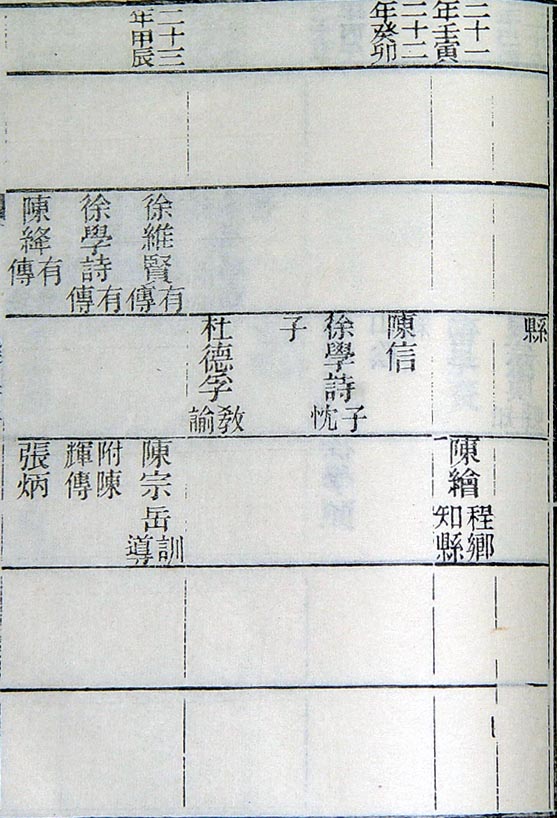 二十一年壬寅
二十二年癸卯
二十三年甲辰
徐維賢有傳
徐學詩有傳
陳絳有傳
縣
陳信
徐學詩子忱
子
杜德孚教諭
陳繪程鄉知縣
陳宗岳訓導
附陳輝傳
張炳